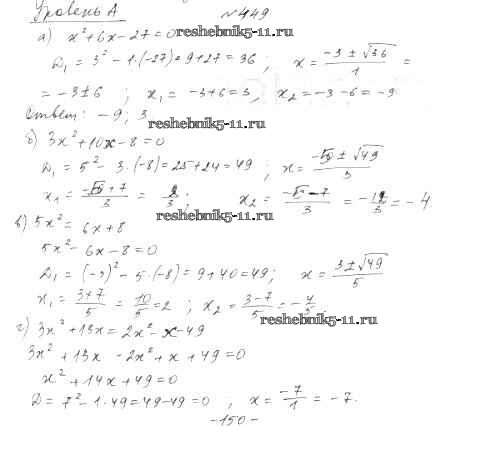 Уровень А
№449
а) x² + 6x - 27 = 0
reshebnik5-11.ru
D₁ = 3² - 1·(-27) = 9 + 27 = 36 ; x = (-3 ± √36)/1 =
= -3 ± 6 ; x₁ = -3+6 = 3 , x₂ = -3 - 6 = -9
Ответ: -9; 3
reshebnik5-11.ru
б) 3x² + 10x - 8 = 0
D₁ = 5² - 3·(-8) = 25 + 24 = 49 ; x = (-5 ± √49)/3
x₁ = (-5 + 7)/3 = 2/3 ; x₂ = (-5 - 7)/3 = -12/3 = -4
reshebnik5-11.ru
в) 5x² = 6x + 8
5x² - 6x - 8 = 0
D₁ = (-3)² - 5·(-8) = 9 + 40 = 49; x = (3 ± √49)/5
x₁ = (3+7)/5 = 10/5 = 2 ; x₂ = (3-7)/5 = -4/5
reshebnik5-11.ru
г) 3x² + 13x = 2x² - x - 49
3x² + 13x - 2x² + x + 49 = 0
x² + 14x + 49 = 0
D = 7² - 1·49 = 49 - 49 = 0 , x = -7/1 = -7.
-150-